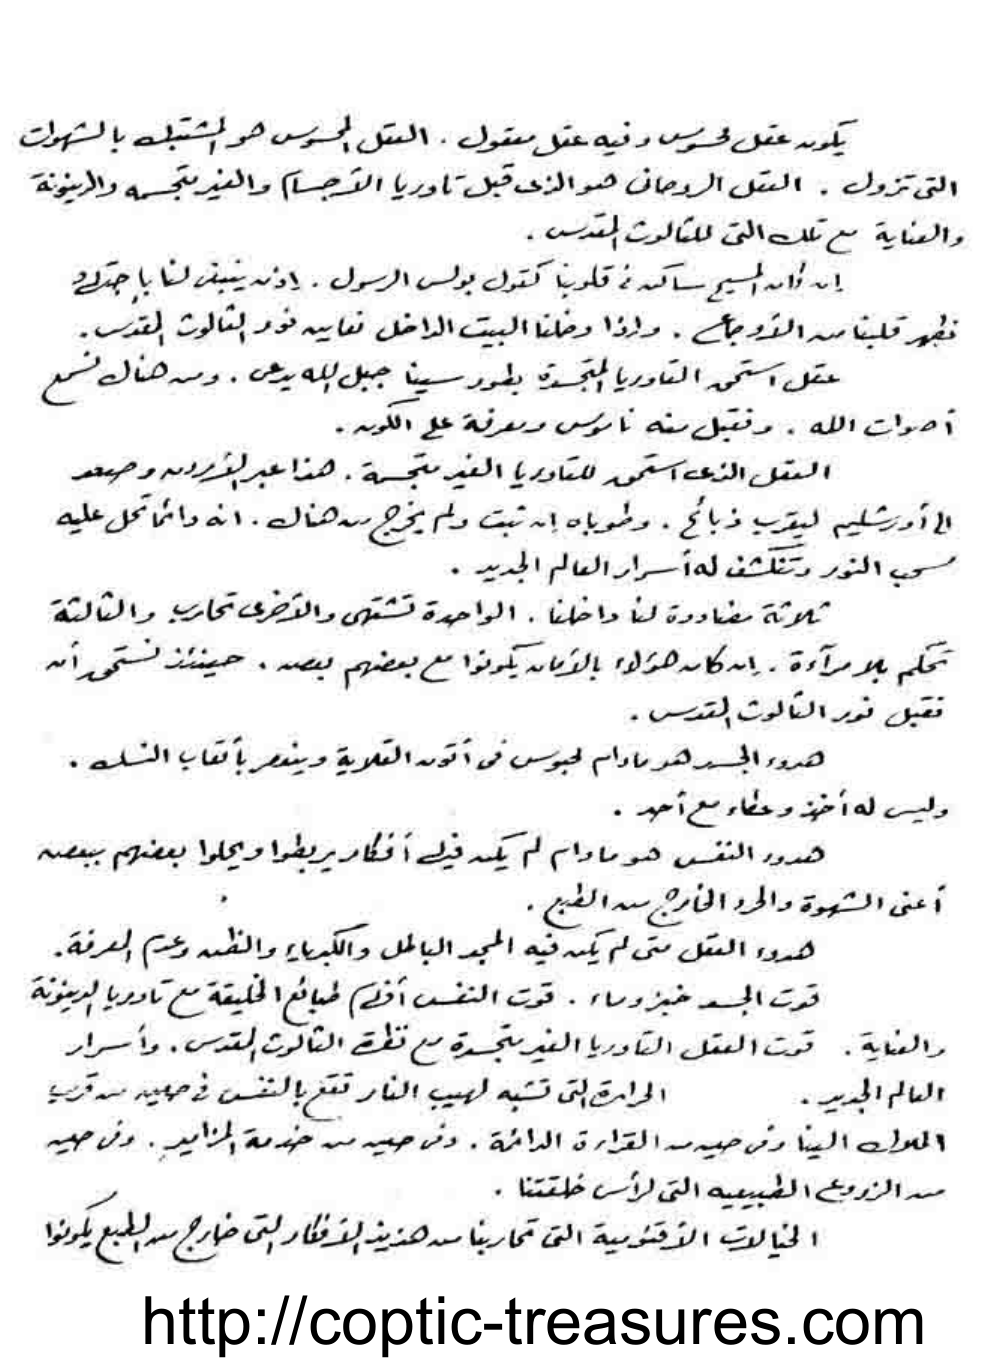 يكون عقل محسوس وفيه عقل معقول . العقل المحسوس هو المشتبك بالشهوات
التى تزول . العقل الروحانى هو الذى قبل تاوريا الأجسام والغير متجسمه والدينونة
والعناية مع تلك التى للثالوث المقدس .
إن كان المسيح ساكن فى قلوبنا كقول بولس الرسول . إذن ينبغى لنا بإ
نطهر قلبنا من الأوجاع . وإذا دخلنا البيت الداخل نعاين نور الثالوث المقدس .
عقل استحق التاوريا المتجسدة بطور سينا جبل الله يدعى . ومن هناك نسمع
أصوات الله . ونقبل منه ناموس ومعرفة على الكون .
العقل الذى استحق للتاوريا الغير متجسمة . هذا عبر الأردن وصعد
الى أورشليم ليقرب ذبائح . وطوباه إن ثبت ولم يخرج من هناك . انه دائما تحل عليه
سحب النور وتنكشف له أسرار العالم الجديد .
ثلاثة مضاددة لنا داخلنا . الواحدة تشتهى والأخرى تحارب والثالثة
تحكم بلا مرآءة . إن كان هؤلاء بالأمان يكونوا مع بعضهم بعض . حينئذ نستحق أن
نقبل نور الثالوث المقدس .
هدوء الجسد هو مادام محبوس فى أتون القلاية وينعصر بأتعاب النسك .
وليس له أخذ وعطاء مع أحد .
هدوء النفس هو مادام لم يكن فيه أفكار يربطوا ويحلوا بعضهم ببعض
أعنى الشهوة والحرد الخارج من الطبع .
هدوء العقل متى لم يكن فيه المجد الباطل والكبرياء والظن وعدم المعرفة .
قوت الجسد خبز وماء . قوت النفس أفهام طبائع الخليقة مع تاوريا الدينونة
والعناية . قوت العقل التاوريا الغير متجسدة مع نظرة الثالوث المقدس . وأسرار
العالم الجديد . الحرارة التى تشبه لهيب النار تقع بالنفس فى حين من قرب
الملوك الينا وفى حين من القراءة الدائمة . وفى حين من خدمة المزامير . وفى حين
من الزروع الطبيعيه التى لرأس خلقتنا .
الخيالات الأقنومية التى تحاربنا من هذين الأفكار التى خارج من الطبع يكونوا
http://coptic-treasures.com